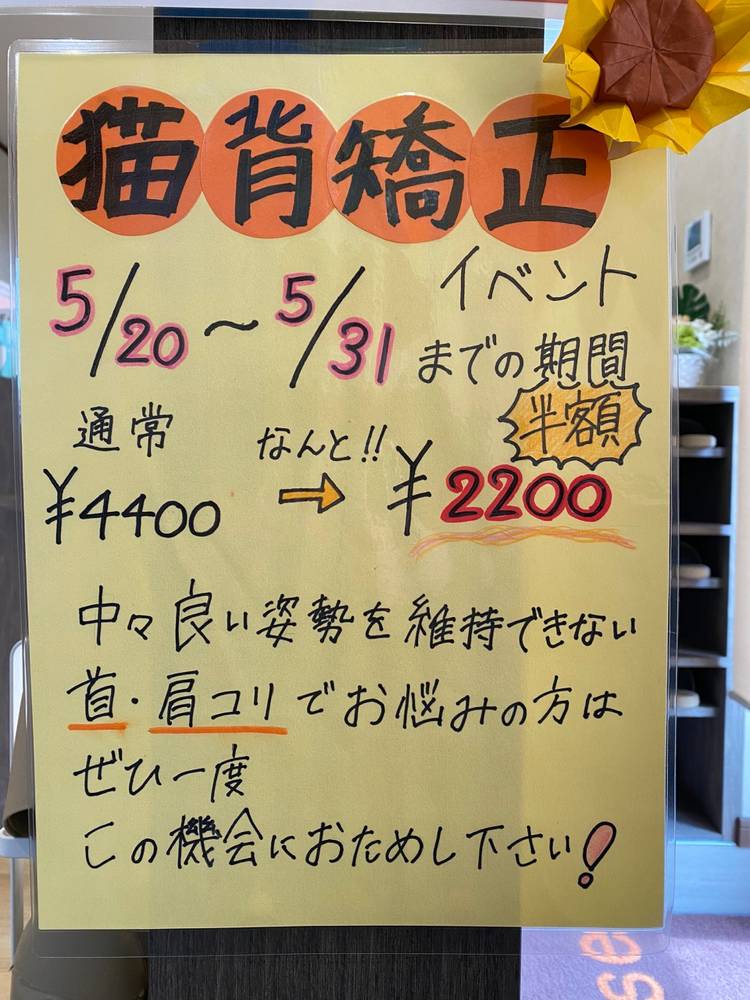 猫背矯正
5/20～5/31 イベント
までの期間
半額
通常 なんと!!
¥4400 → ¥2200
中々良い姿勢を維持できない
首・肩コリでお悩みの方は
ぜひ一度
この機会におためし下さい!
se